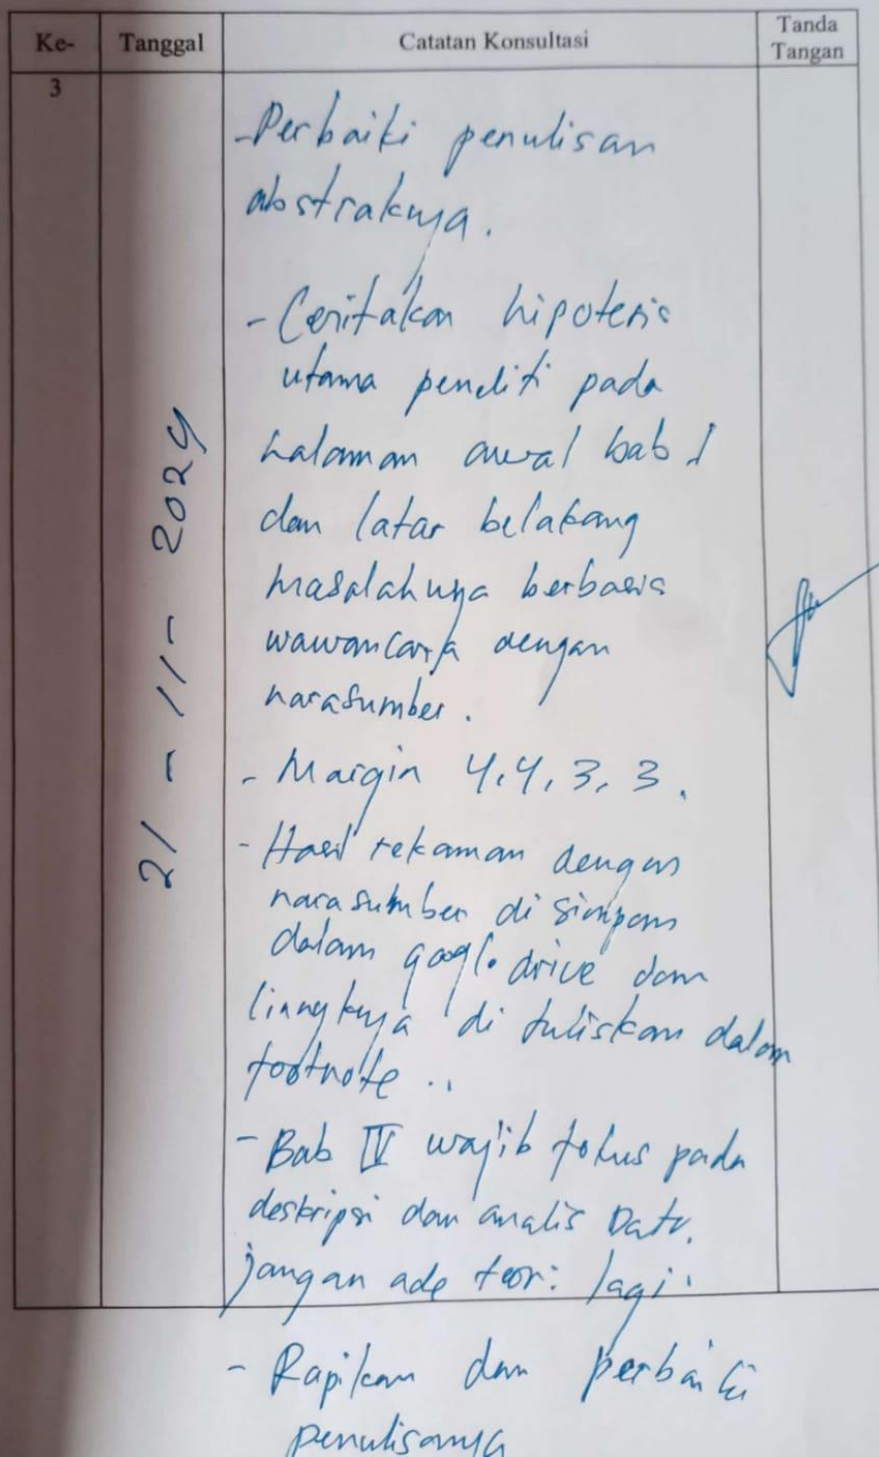 Ke- Tanggal Catatan Konsultasi Tanda Tangan
3
21 - 11 - 2024
- Perbaiki penulisan
abstraknya.
- Ceritakan hipotesis
utama peneliti pada
halaman awal bab I
dan latar belakang
masalahnya berbasis
wawancara dengan
narasumber.
- Margin 4,4,3,3.
- Hasil rekaman dengan
narasumber di simpan
dalam google drive dan
liangknya di tuliskan dalam
footnote ..
- Bab IV wajib fokus pada
deskripsi dan analis Data.
jangan ada teori lagi.
- Rapikan dan perbaiki
penulisannya